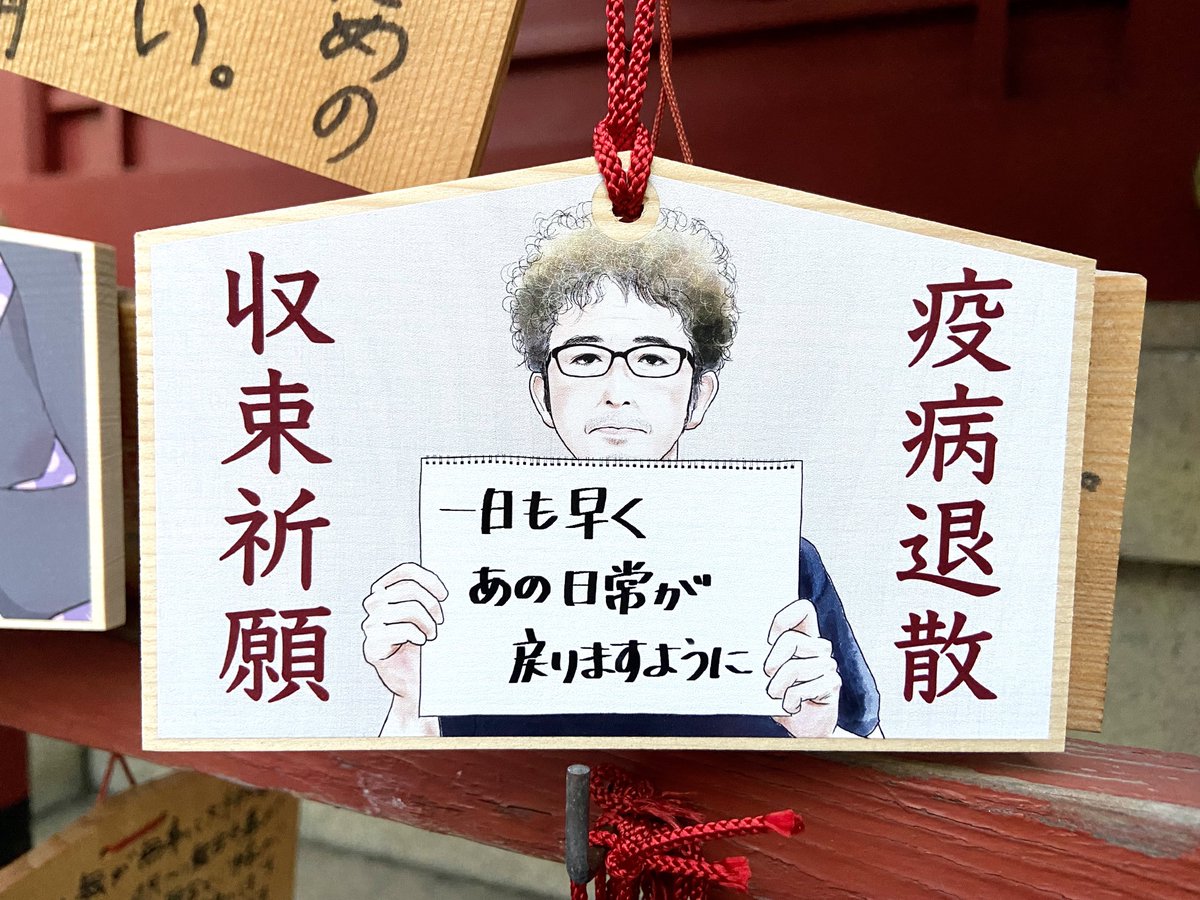 めの
い。
疫病退散
一日も早く
あの日常が
戻りますように
収束祈願